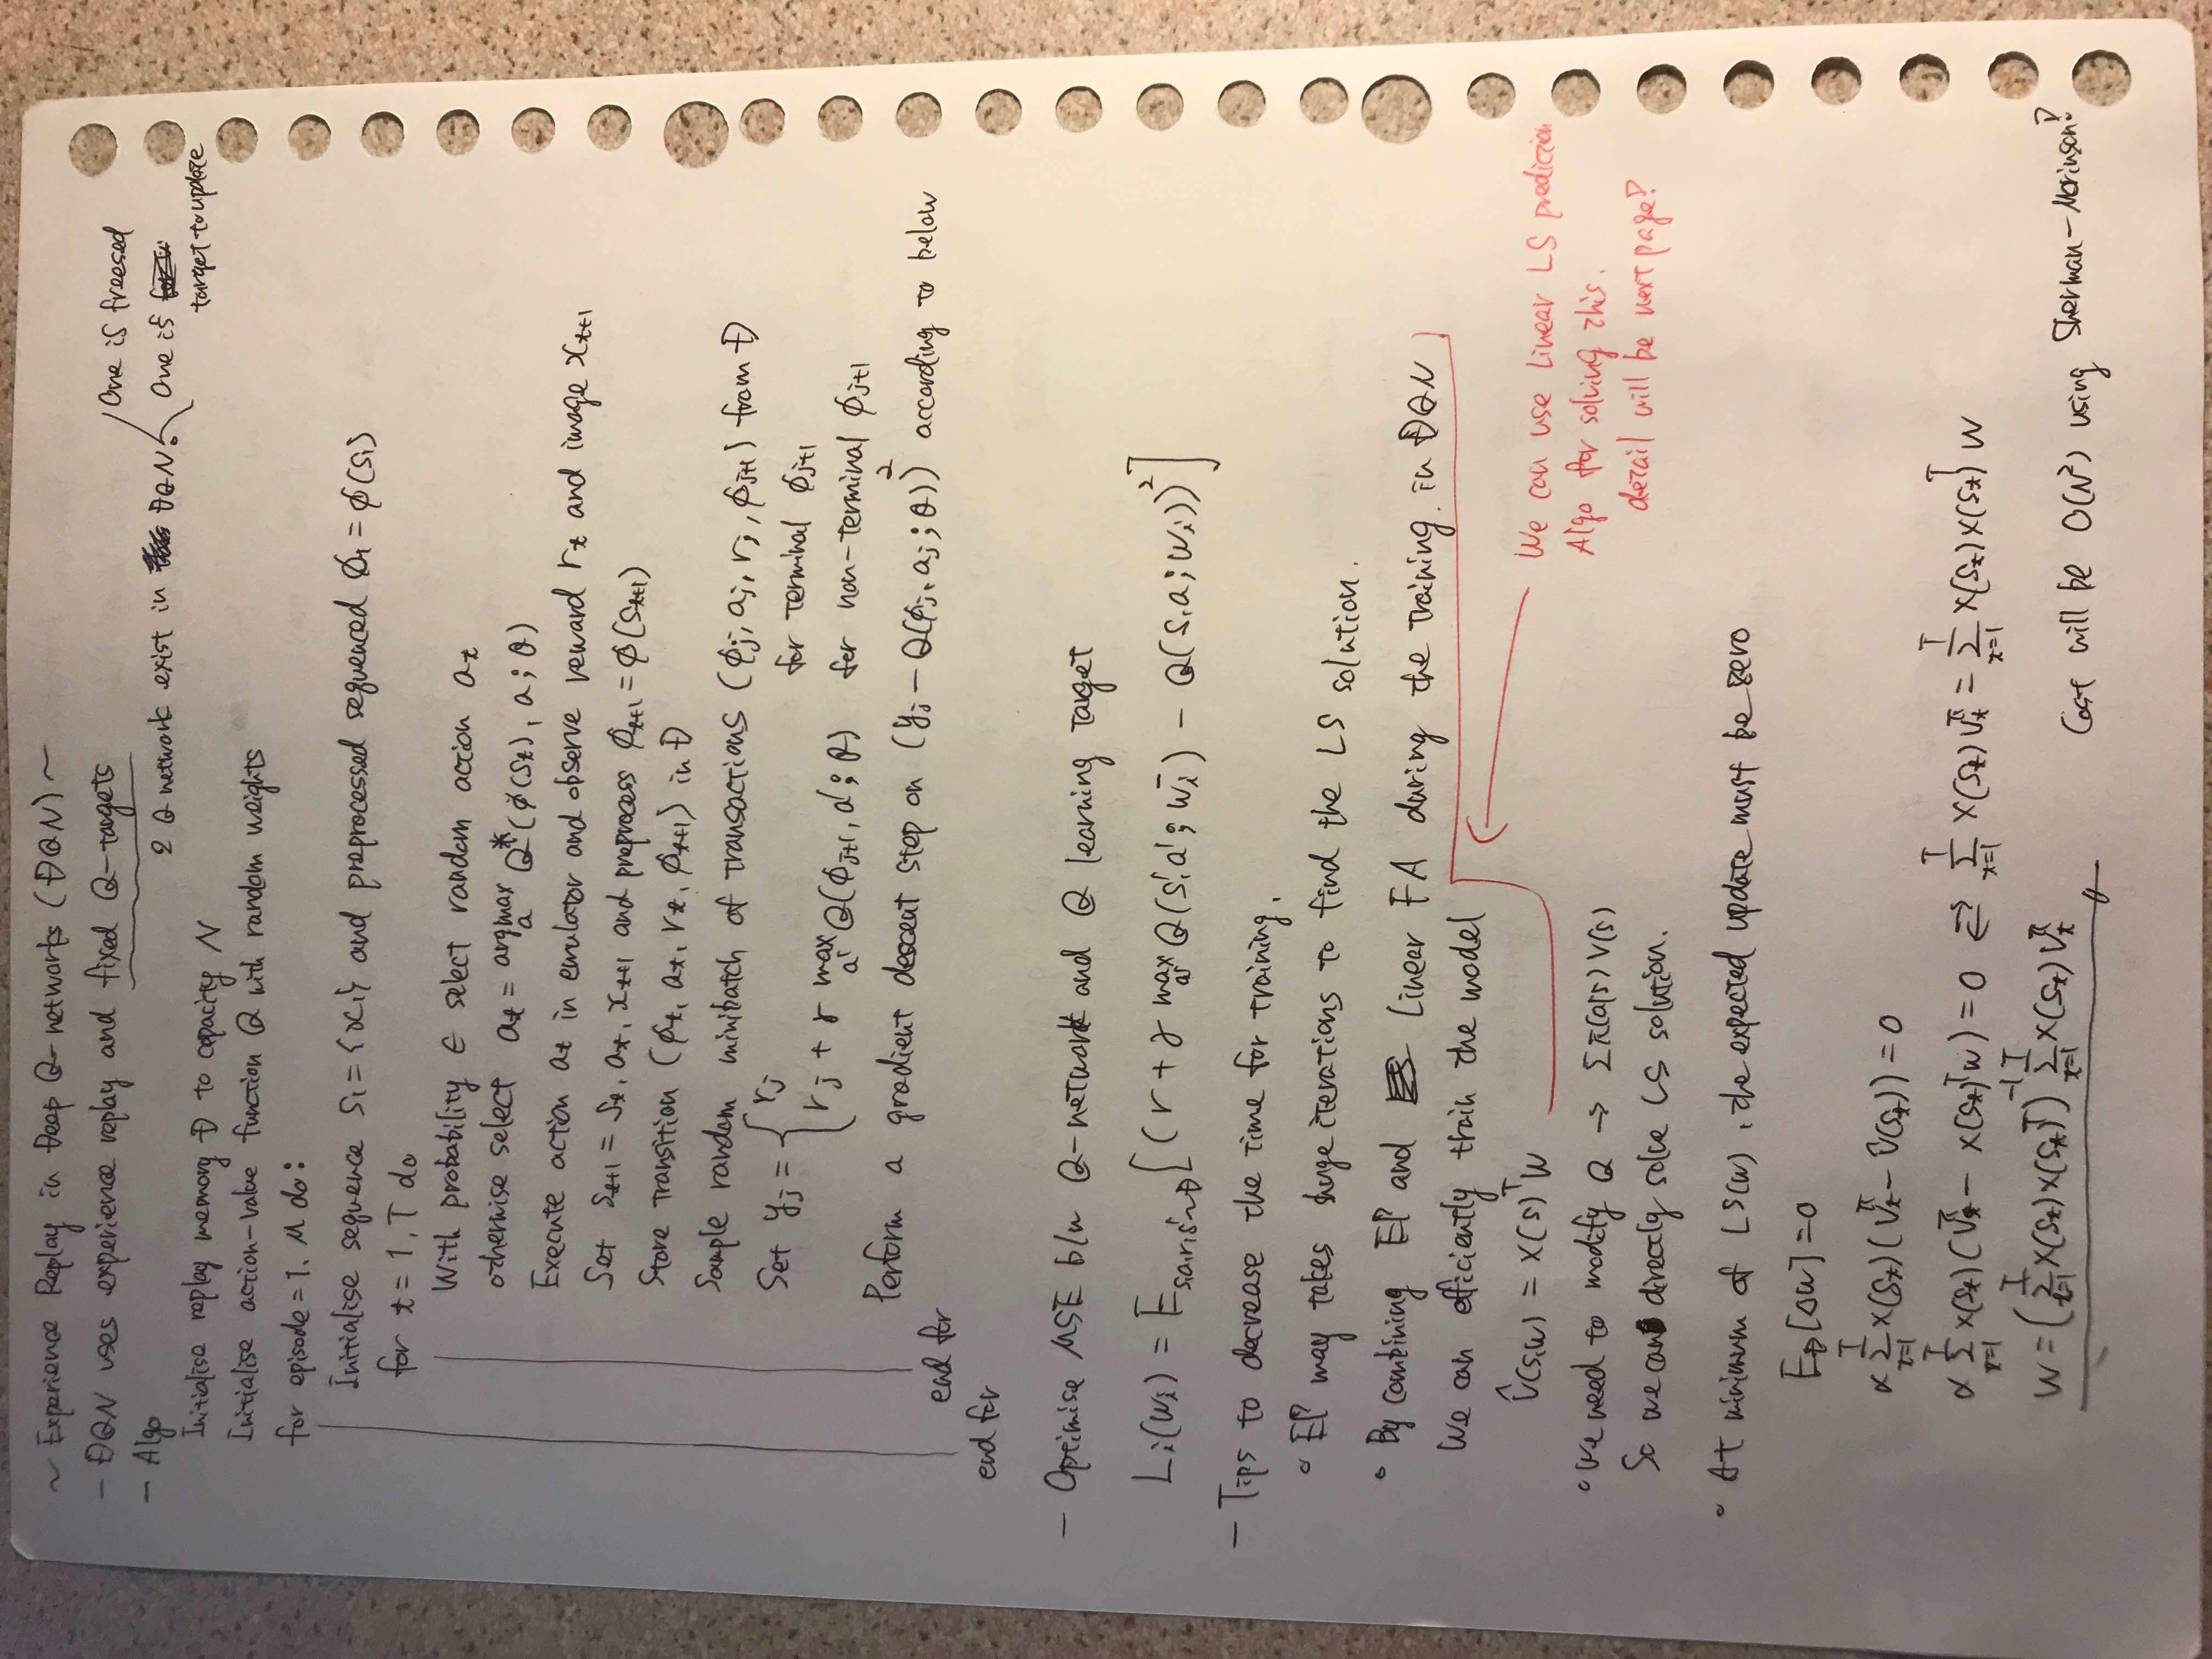 ~ Experience Replay in Deep Q-networks (DQN) ~
- DQN uses experience replay and fixed Q-targets
2 Q network exist in DQN.
One is freesed
One is target to update
- Algo
Initialise replay memory D to capacity N
Initialise action-value function Q with random weights
for episode = 1. M do:
Initialise sequence s₁ = {x₁} and preprocessed sequenced ϕ₁ = ϕ(s₁)
for t = 1, T do
With probability ϵ select random action aₜ
otherwise select aₜ = argmax_a Q*(ϕ(sₜ), a; θ)
Execute action aₜ in emulator and observe reward rₜ and image xₜ₊₁
Set sₜ₊₁ = sₜ, aₜ, xₜ₊₁ and preprocess ϕₜ₊₁ = ϕ(sₜ₊₁)
Store transition (ϕₜ, aₜ, rₜ, ϕₜ₊₁) in D
Sample random minibatch of transactions (ϕⱼ, aⱼ, rⱼ, ϕⱼ₊₁) from D
Set yⱼ = { rⱼ for terminal ϕⱼ₊₁
rⱼ + γ max_a' Q(ϕⱼ₊₁, a'; θ) for non-terminal ϕⱼ₊₁
Perform a gradient descent step on (yⱼ - Q(ϕⱼ, aⱼ; θ))² according to below
end for
end for
- Optimise MSE b/w Q-network and Q learning target
Lᵢ(wᵢ) = E_{s,a,r,s'~D} [(r + γ max_a' Q(s', a'; wᵢ⁻) - Q(s, a; wᵢ))²]
- Tips to decrease the time for training.
∘ EP may takes huge iterations to find the LS solution.
∘ By combining EP and Linear FA during the training. in DQN
We can efficiently train the model
v̂(s,w) = x(s)ᵀw
We can use Linear LS prediction
Algo for solving this.
detail will be next page!
∘ We need to modify Q → Σπ(a|s) V(s)
So we can directly solve LS solution.
∘ At minimum of LS(w), the expected update must be zero
E_D[Δw] = 0
α Σ_{t=1}^T x(sₜ)(vₜ^π - v̂(sₜ)) = 0
α Σ_{t=1}^T x(sₜ)(vₜ^π - x(sₜ)ᵀw) = 0 ⇄ Σ_{t=1}^T x(sₜ)vₜ^π = Σ_{t=1}^T x(sₜ)x(sₜ)ᵀ w
w = (Σ_{t=1}^T x(sₜ)x(sₜ)ᵀ)⁻¹ Σ_{t=1}^T x(sₜ)vₜ^π
Cost will be O(N²) using Sherman-Morinson!